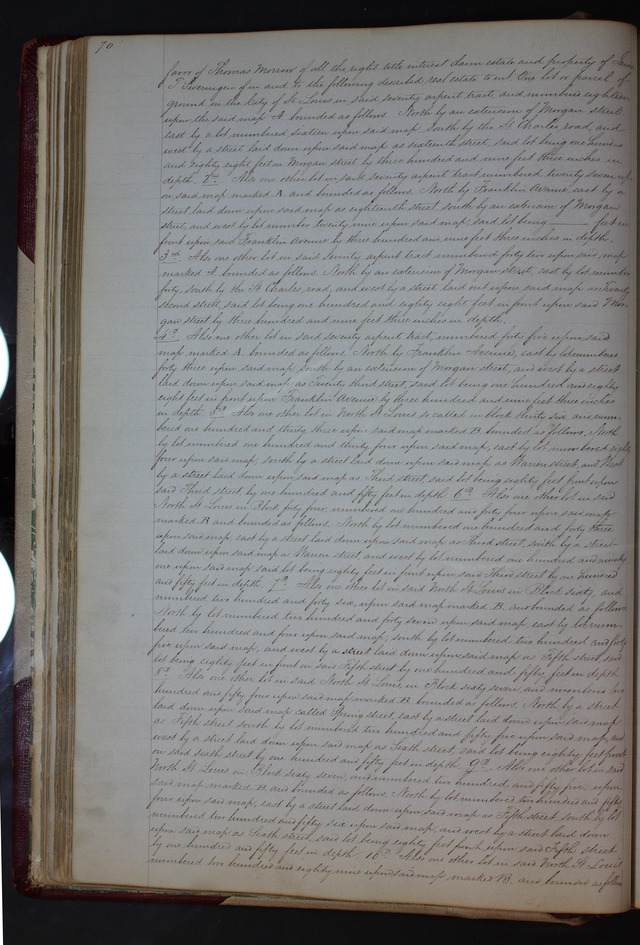 70
favor of Thomas Morrow of all the right title interest claim estate and property of
T in and to the following described real estate to wit. One lot or parcel of
ground in the City of St Louis in said seventy arpent tract, and numbered eighteen
upon the said map A bounded as follows. North by an extension of Morgan street
east by a lot numbered sixteen upon said map South by the St Charles road, and
west by a street laid down upon said map as sixteenth street, said lot being one hundred
and eighty eight feet on Morgan street by three hundred and nine feet three inches in
depth. Also one other lot in said seventy arpent tract numbered twenty seven up
on said map marked A and bounded as follows. North by Franklin Avenue east by a
street laid down upon said map as eighteenth street south by an extension of Morgan
street, and west by lot number twenty nine upon said map, said lot being feet in
front upon said Franklin Avenue by three hundred and nine feet three inches in depth.
3rd Also one other lot in said Seventy arpent tract numbered forty two upon said map
marked A. bounded as follows. North by an extension of Morgan Street, east by lot number
forty, south by the St Charles, road, and west by a street laid out upon said map as Twenty
second street, said lot being one hundred and eighty eight feet in front upon said Mor-
gan street by three hundred and nine feet three inches in depth.
4th Also one other lot in said seventy arpent tract, numbered forty five upon said
map marked A. bounded as follows. North by Franklin Avenue, east by lot numbered
forty three upon said map South by an extension of Morgan street, and west by a street
laid down upon said map as Twenty third street, said lot being one hundred and eighty
eight feet in front upon Franklin Avenue by three hundred and nine feet three inches
in depth. 5th Also one other lot in North St Louis so called in block thirty six, and num-
bered one hundred and thirty three upon said map marked B. bounded as follows, North
by lot numbered one hundred and thirty four upon said map, east by lot numbered eighty
four upon said map, south by a street laid down upon said map as Warren street, and West
by a street laid down upon said map as Third street, said lot being eighty feet front upon
said Third street by one hundred and fifty feet in depth 6th Also one other lot in said
North St Louis in Block forty four, numbered one hundred and forty four upon said map
marked B and bounded as follows. North by lot numbered one hundred and forty three
upon said map, east by a street laid down upon said map as Third street, south by a street
laid down upon said map as Warren street and west by lot numbered one hundred and ninety
one upon said map said lot being eighty feet in front upon said Third street by one hundred
and fifty feet in depth. 7th Also one other lot in said North St Louis in Block sixty, and
numbered two hundred and forty six, upon said map marked B. and bounded as follows
North by lot numbered two hundred and forty seven upon said map, east by lot num-
bered two hundred and four upon said map, South by lot numbered two hundred and forty
five upon said map, and west by a street laid down upon said map as Fifth street said
lot being eighty feet in front on said Fifth street by one hundred and fifty feet in depth
8th Also one other lot in said North St Louis, in Block sixty seven, and numbered two
hundred and fifty four upon said map marked B. bounded as follows. North by a street
laid down upon said map called Spring street, east by a street laid down upon said map
as Fifth street south by lot numbered two hundred and fifty five upon said map, and
west by a street laid down upon said map as Sixth street, said lot being eighty feet front
on said sixth street by one hundred and fifty feet in depth. 9th Also one other lot in said
North St Louis in Block sixty seven, and numbered two hundred, and fifty five, upon
said map marked B. and bounded as follows. North by lot numbered two hundred and fifty
four upon said map, east by a street laid down upon said map as Fifth street South by lot
numbered two hundred and fifty six upon said map, and west by a street laid down
upon said map as Sixth street, said lot being eighty feet front upon said Fifth street
by one hundred and fifty feet in depth 10th Also one other lot in said North St Louis
numbered two hundred and eighty nine upon said map marked B. and bounded as follows